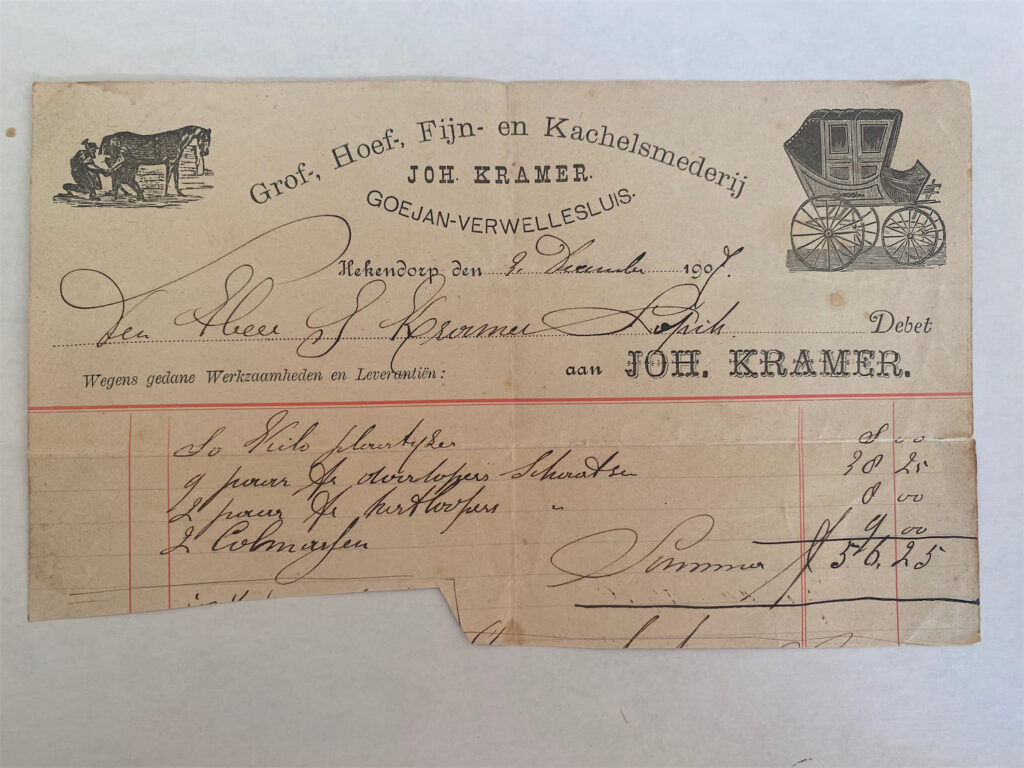 Grof-, Hoef-, Fijn- en Kachelsmederij
JOH. KRAMER.
GOEJAN-VERWELLESLUIS.
Hekendorp den 9 December 1907.
Den Heer S Kramer Lopik Debet
Wegens gedane Werkzaamheden en Leverantiën: aan JOH. KRAMER.
50 Kilo 00
9 paar fr doorlopers Schaatsen 38 25
2 paar fr " 8 00
2 9 00
Somma f 56,25